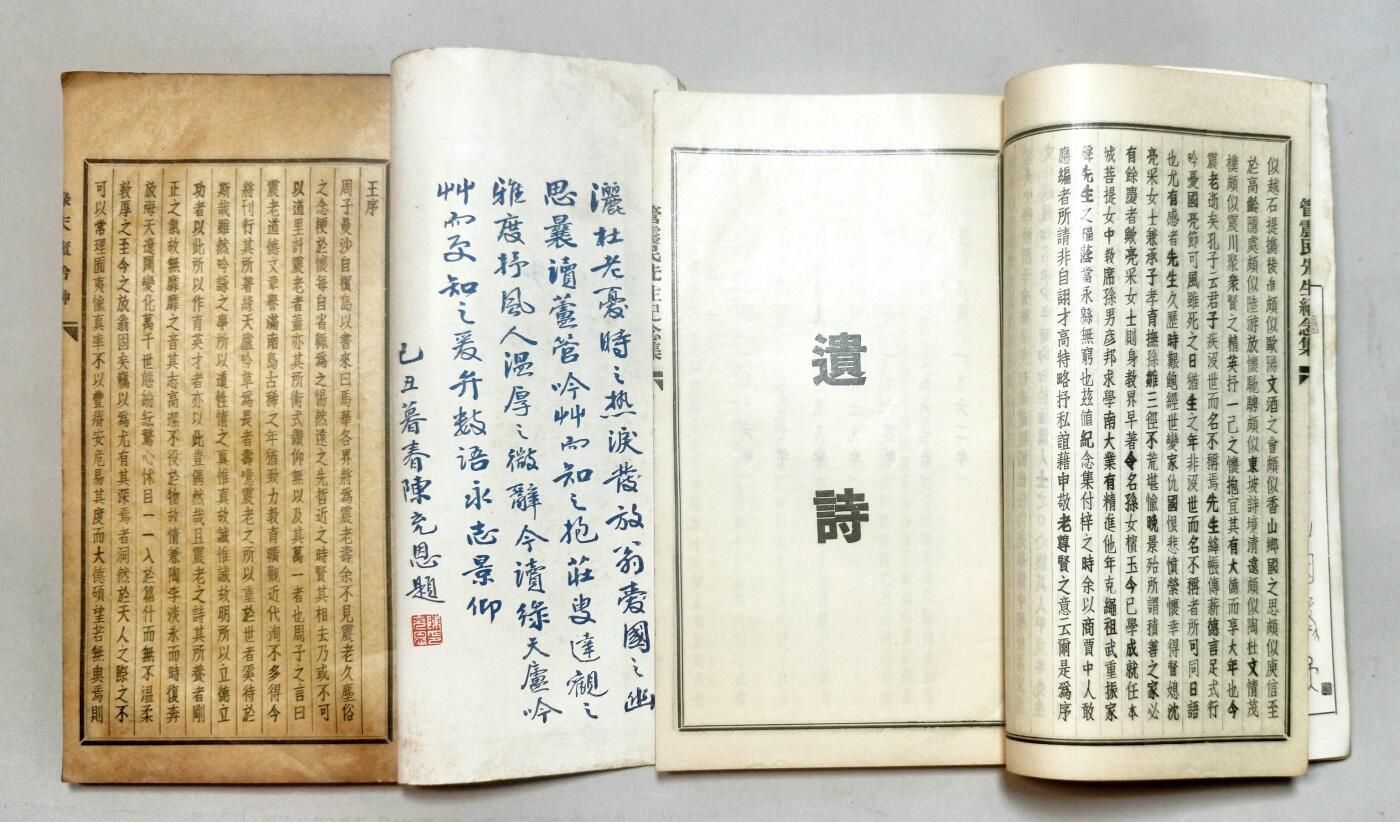 管震民先生紀念集
似越石提攜後進頗似歐陽文酒之會頗似香山鄉國之思頗似庾信至
於高齡隱處頗似陸游放懷馳騁頗似東坡詩境清遠頗似陶杜文情茂
樸頗似震川聚衆賢之精英抒一己之懷抱宜其有大德而享大年也今
震老逝矣孔子云君子疾沒世而名不稱焉先生絳帳傳薪德言足式行
吟憂國亮節可風雖死之日猶生之年非沒世而名不稱者所可同日語
也尤有感者先生久歷時艱飽經世變家仇國恨悲憤縈懷幸得賢媳沈
亮采女士兼承子孝育撫孫雛三徑不荒堪愉晚景殆所謂積善之家必
有餘慶者歟亮采女士則身教界早著令名孫女檳玉今已學成就任本
城菩提女中教席孫男彥邦求學南大業有精進他年克繩祖武重振家
聲先生之福蔭當永緜無窮也茲值紀念集付梓之時余以商賈中人敢
應編者所請非自詡才高特略抒私誼藉申敬老尊賢之意云爾是爲序
遺詩
管震民先生紀念集
灑杜老憂時之热淚發放翁愛國之幽
思曩讀蘆管吟艸而知之抱莊叟達觀之
雅度抒風人温厚之微辭今讀綠天廬吟
艸而更知之爰弁數語永志景仰
己丑暮春陳充恩題
王序
周子曼沙自檳島以書來曰馬華各界將為震老壽余不見震老久塵俗
之念梗於懷每自省輒為之惕然遠之先哲近之時賢其相去乃或不可
以道里計震老者蓋亦其所衡式鑽仰無以及其萬一者也周子之言曰
震老道德文章譽滿南島古稀之年猶致力教育曠觀近代洵不多得今
將刊行其所著綠天廬吟草為長者壽噫震老之所以重於世者奚待於
斯哉雖然吟詠之事所以道性情之真惟真故誠惟誠故明所以立德立
功者以此所以作育英才者亦以此豈偶然哉且震老之詩其所養者剛
正之氣故無靡靡之音其志高潔不役於物故情兼陶李淡永而時復奔
放海天遼闊變化萬千世態紛紜驚心怵目一一入於篇什而無不溫柔
敦厚之至今之放翁固矣竊以為尤有其深焉者洞然於天人之際之不
可以常理囿夷愉真率不以豐瘠安危易其度而大德碩望若無與焉則
綠天廬吟艸